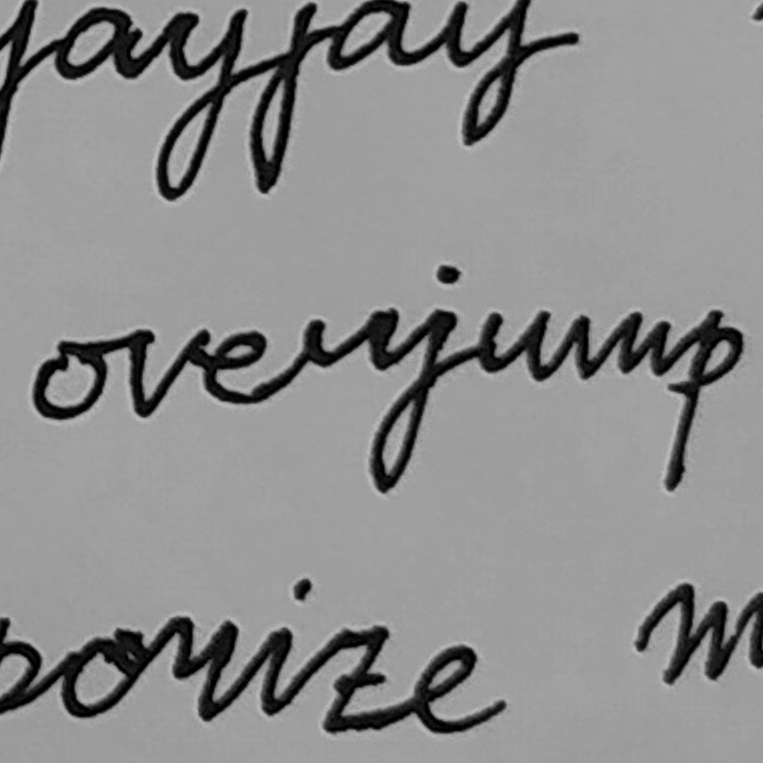 jayjay
overjump
porize m